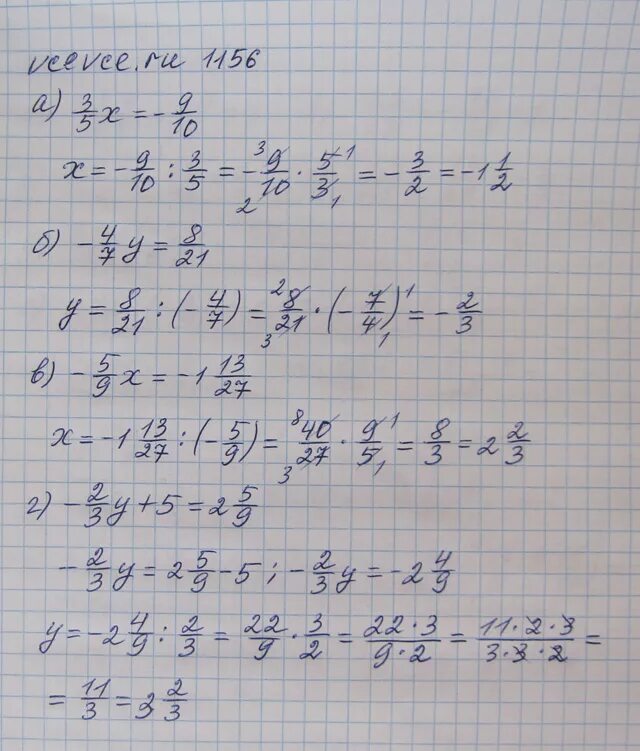 vcevce.ru 1156
а) 3/5 x = - 9/10
x = - 9/10 : 3/5 = - ³9/10₂ · 5¹/3₁ = - 3/2 = -1 1/2
б) - 4/7 y = 8/21
y = 8/21 : (- 4/7) = ²8/21₃ · (- 7/4)¹₁ = - 2/3
в) - 5/9 x = -1 13/27
x = -1 13/27 : (- 5/9) = ⁸40/27₃ · 9¹/5₁ = 8/3 = 2 2/3
г) - 2/3 y + 5 = 2 5/9
- 2/3 y = 2 5/9 - 5 ; - 2/3 y = -2 4/9
y = -2 4/9 : 2/3 = 22/9 · 3/2 = 22 · 3/9 · 2 = 11 · 2 · 3/3 · 3 · 2 =
= 11/3 = 3 2/3